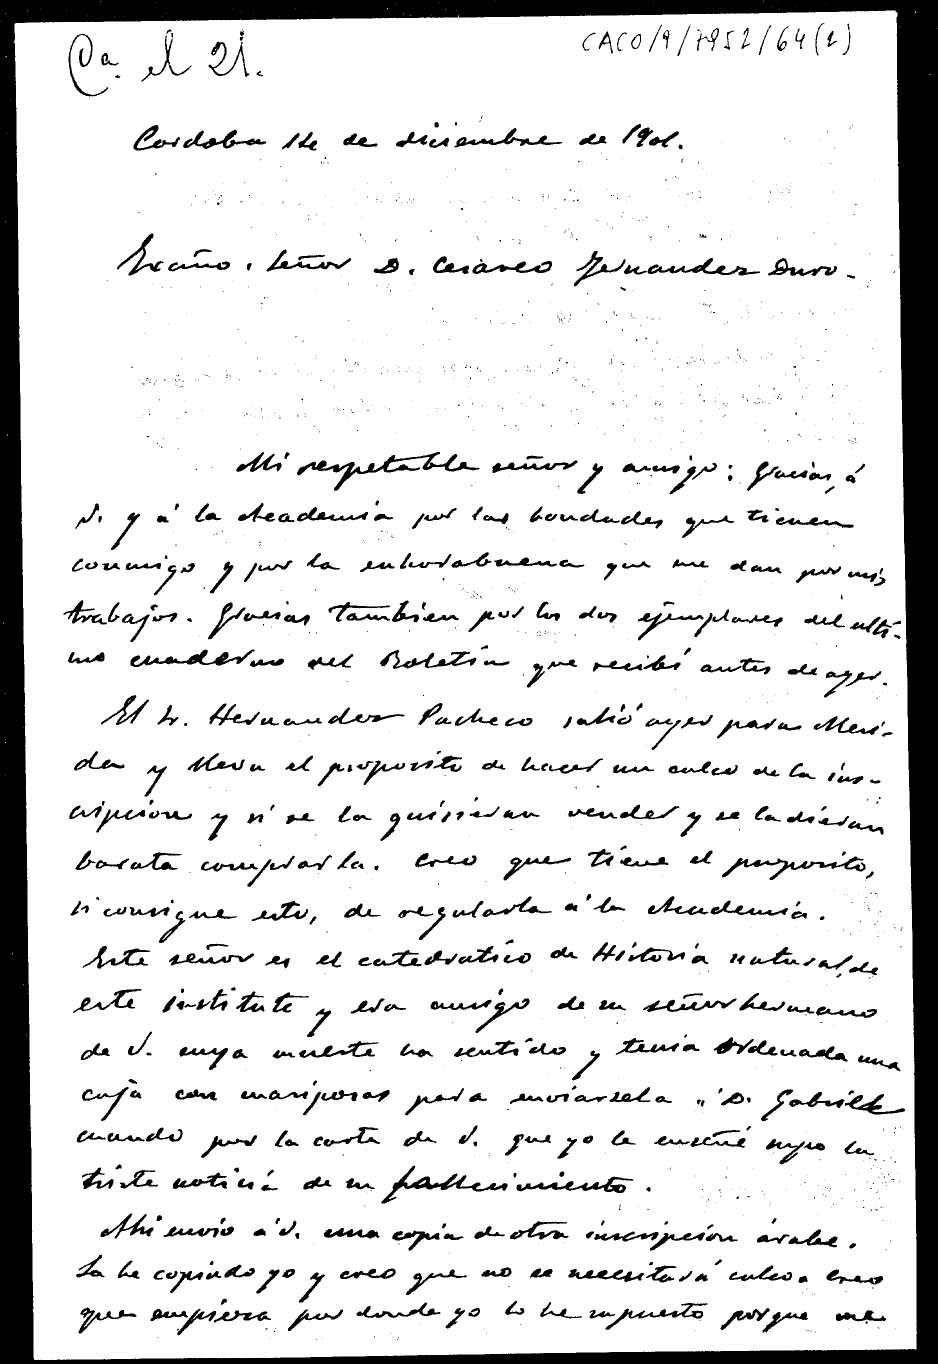 Ca. el 21.
CACO/9/7952/64(1)
Cordoba 14 de diciembre de 1901.
Excmo. Señor D. Cesareo Fernandez Duro.
Mi respetable señor y amigo: Gracias, á
V. y á la Academia por las bondades que tienen
conmigo y por la enhorabuena que me dan por mis
trabajos. Gracias tambien por los dos ejemplares del ulti-
mo cuaderno del Boletín que recibí antes de ayer.
El Sr. Hernandez Pacheco salió ayer para Meri-
da y lleva el proposito de hacer un calco de la ins-
cripcion y si se la quisieran vender y se la dieran
barata comprarla. Creo que tiene el proposito,
si consigue esto, de regalarla á la Academia.
Este señor es el catedratico de Historia natural, de
este instituto y era amigo de su señor hermano
de V. cuya muerte ha sentido y tenia ordenada una
caja con mariposas para enviarsela á D. Gabriel
cuando por la carta de V. que yo le enseñé supo la
triste noticia de su fallecimiento.
Ahi envio á V. una copia de otra inscripcion árabe.
La he copiado yo y creo que no se necesitará calco. Creo
que empieza por donde yo lo he supuesto porque me